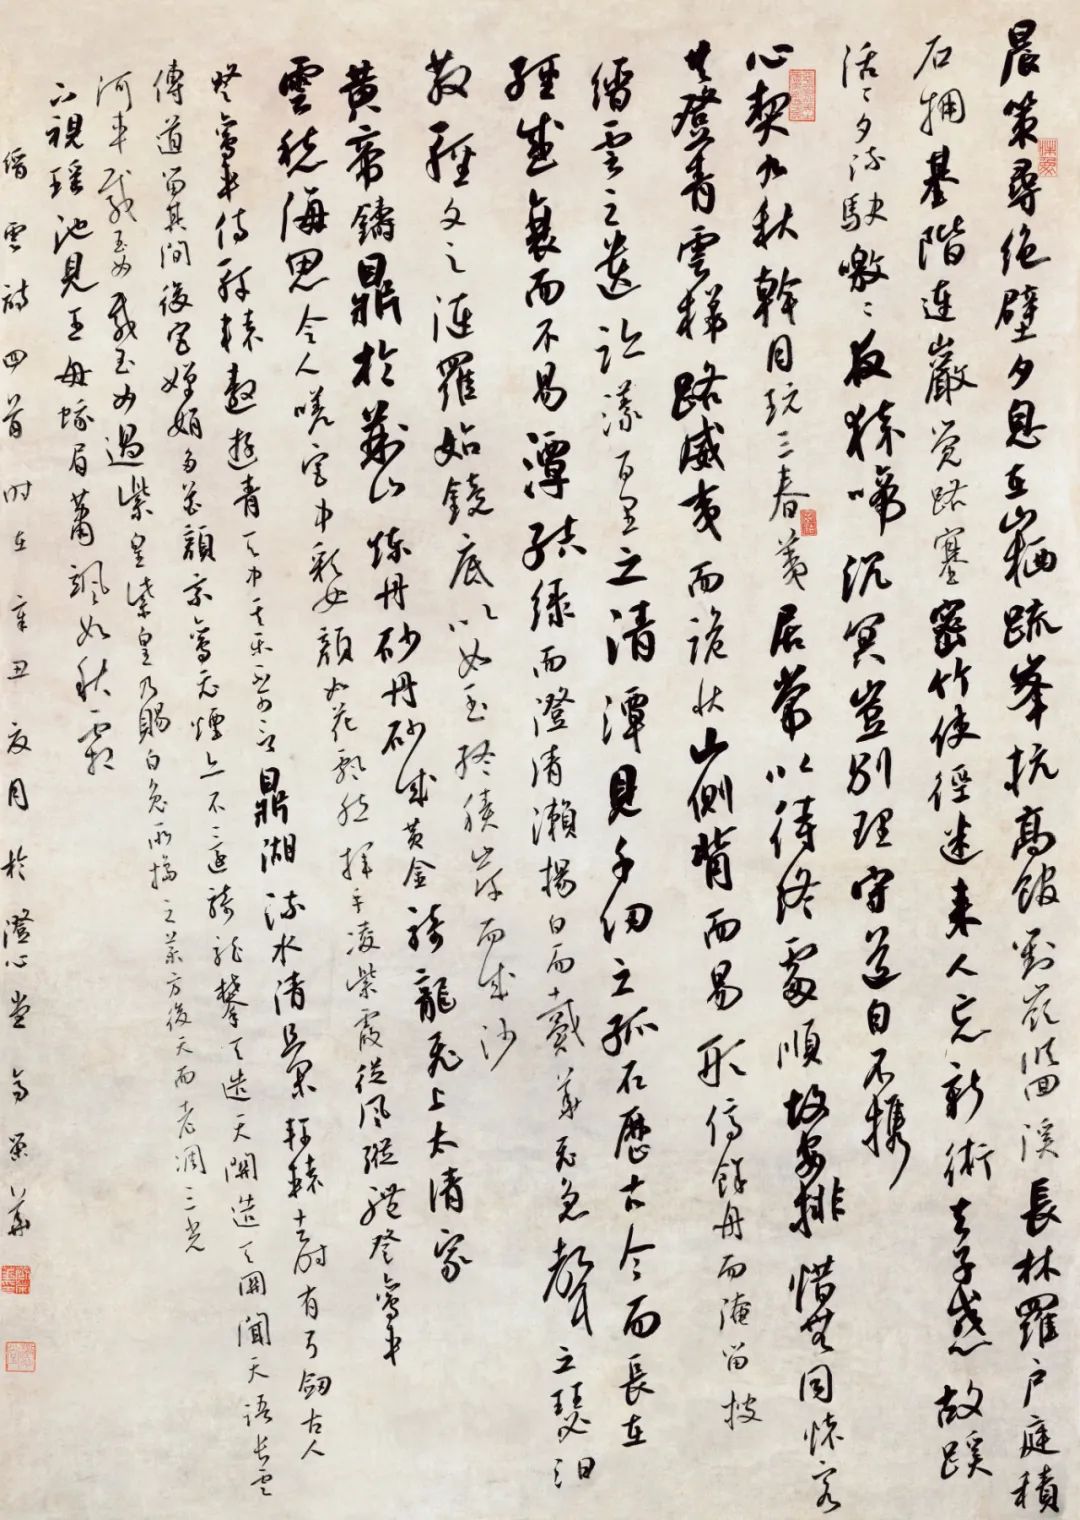 晨策尋絕壁夕息在山栖疏峯抗高館對嶺臨迴溪長林羅戶庭積
石擁基階連巖覺路塞密竹使徑迷來人忘新術去子惑故蹊
活〻夕流駛噭〻夜猿啼沉冥豈別理守道自不攜
心契九秋幹目玩三春荑居常以待終處順故安排惜無同懷客
共登青雲梯路威夷而詭狀山側背而易形停餘舟而淹留披
縉雲之遺迹漾百里之清潭見千仞之孤石歷古今而長在
經盛衰而不易潭結綠而澄清瀨揚白而戴華飛急聲之瑟汩
散輕文之漣羅始鏡底以如玉終積岸而成沙
黃帝鑄鼎於荊山煉丹砂丹砂成黃金騎龍飛上太清家
雲愁海思令人嗟宮中彩女顏如花飄然揮手凌紫霞從風縱體登鸞車
登鸞車侍軒轅遨遊青天中其樂不可言鼎湖流水清且閑軒轅去時有弓劒古人
傳道留其間後宮嬋娟多花顏乘鸞飛煙亦不還騎龍攀天造天關造天關聞天語長雲
河車載玉女載玉女過紫皇紫皇乃賜白兔所擣之藥方後天而老凋三光
下視瑶池見王母蛾眉蕭颯如秋霜
縉雲詩四首時在辛丑夏月於澄心堂